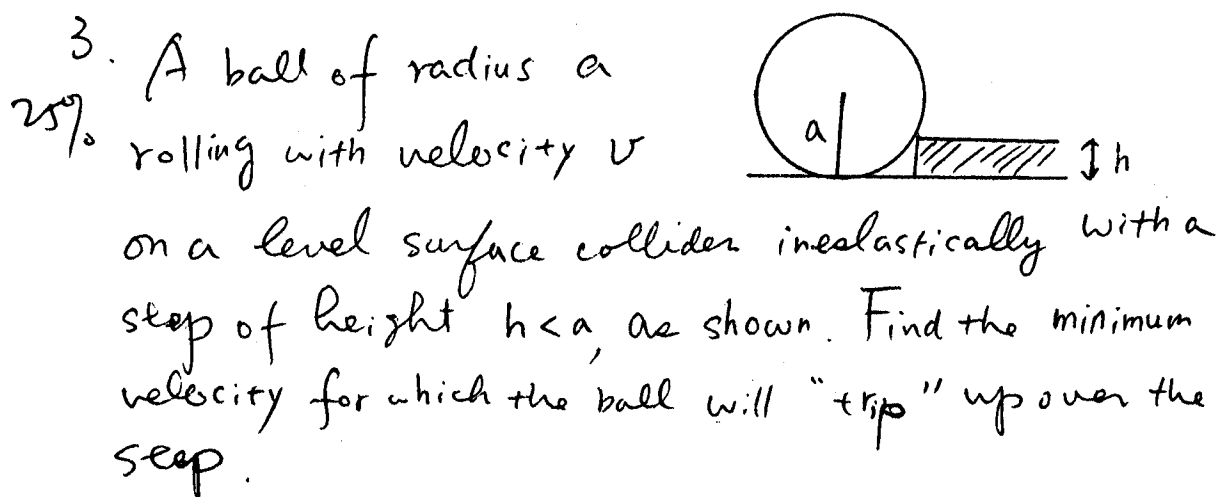 3. A ball of radius a
25% rolling with velocity v
on a level surface collides inelastically with a
step of height h<a, as shown. Find the minimum
velocity for which the ball will "trip" up over the
step.
a
h